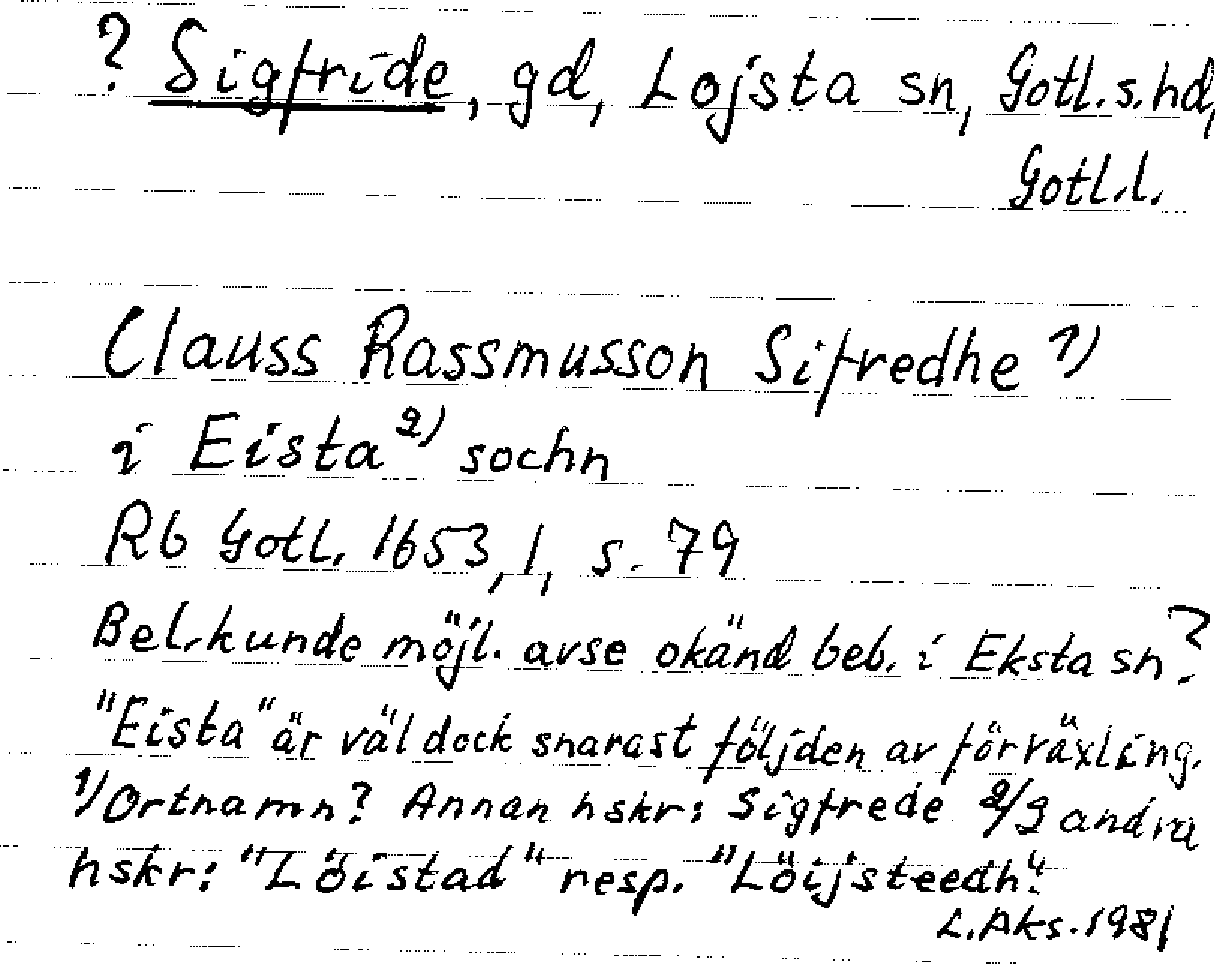 ? Sigfride, gd, Lojsta sn, Gotl.s.hd,
Gotl.l.
Clauss Rassmusson Sifredhe 1)
i Eista 2) sochn
Rb Gotl. 1653,1, s. 79
Bel. kunde möjl. avse okänd beb. i Eksta sn?
"Eista" är väl dock snarast följden av förväxling.
1/ Ortnamn? Annan hskr: Sigfrede 2/ 2 andra
hskr: "Löistad" resp. "Löijsteedh".
L.Aks. 1981